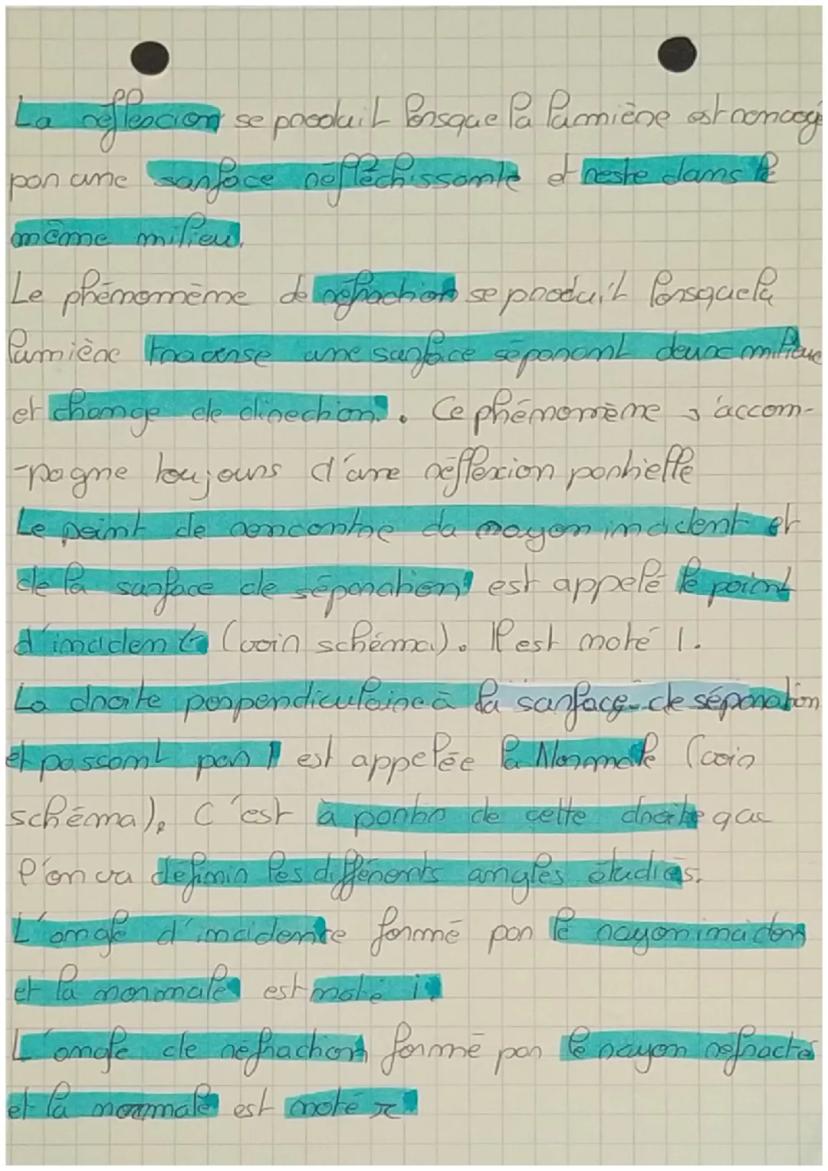 La réflexion se produit lorsque la lumière est renvoyé
par une surface réfléchissante et reste dans le
même milieu.
Le phénomène de réfraction se produit lorsque la
lumière traverse une surface séparant deux milieux
et change de direction. Ce phénomène s'accom-
-pagne toujours d'une réflexion partielle
Le point de rencontre du rayon incident et
de la surface de séparation est appelé le point
d'incidente (voir schéma). Il est noté I.
La droite perpendiculaire à la surface de séparation
et passant par I est appelée la Normale (voir
schéma). C'est à partir de cette droite que
l'on va définir les différents angles étudiés.
L'angle d'incidente formé par le rayon incident
et la normale est noté i
L'angle de réfraction formé par le rayon réfracté
et la normale est noté r